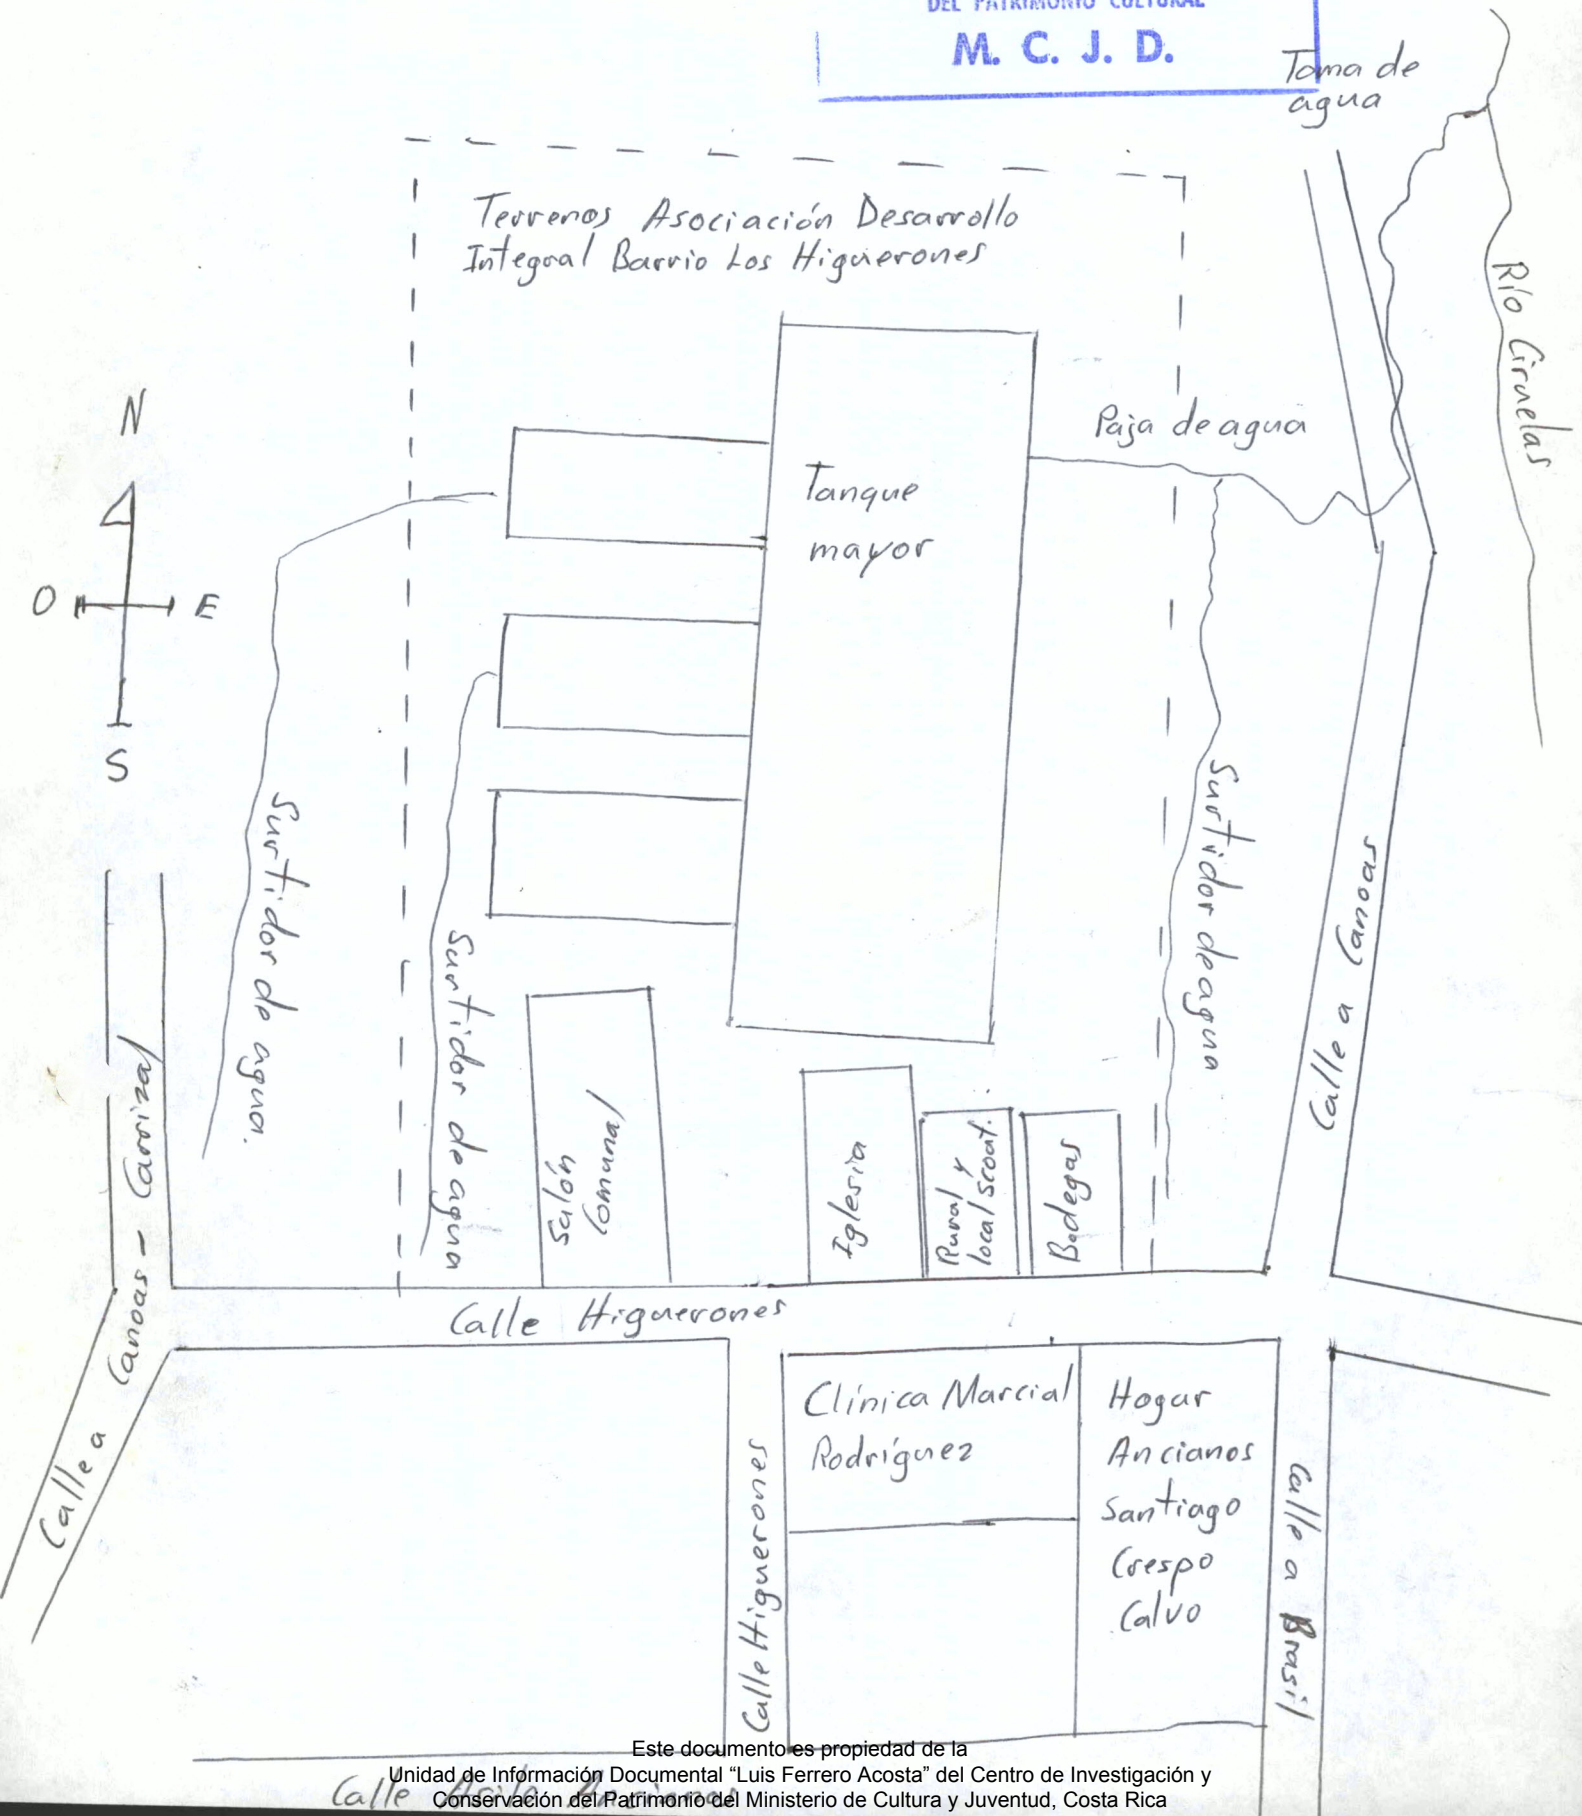 DEL PATRIMONIO CULTURAL
M. C. J. D.
Toma de
agua
Terrenos Asociación Desarrollo
Integral Barrio Los Higuerones
Río Ciruelas
N
O
E
S
Paja de agua
Tanque
mayor
Surtidor de agua.
Surtidor de agua
Surtidor de agua
Calle a Canoas
Calle a Canoas - Carrizal
Salón
Comunal
Iglesia
Rural y
local scout.
Bodegas
Calle Higuerones
Clínica Marcial
Rodríguez
Hogar
Ancianos
Santiago
Crespo
Calvo
Calle Higuerones
Calle a Brasil
Calle Asilo Ancianos
Este documento es propiedad de la
Unidad de Información Documental “Luis Ferrero Acosta” del Centro de Investigación y
Conservación del Patrimonio del Ministerio de Cultura y Juventud, Costa Rica